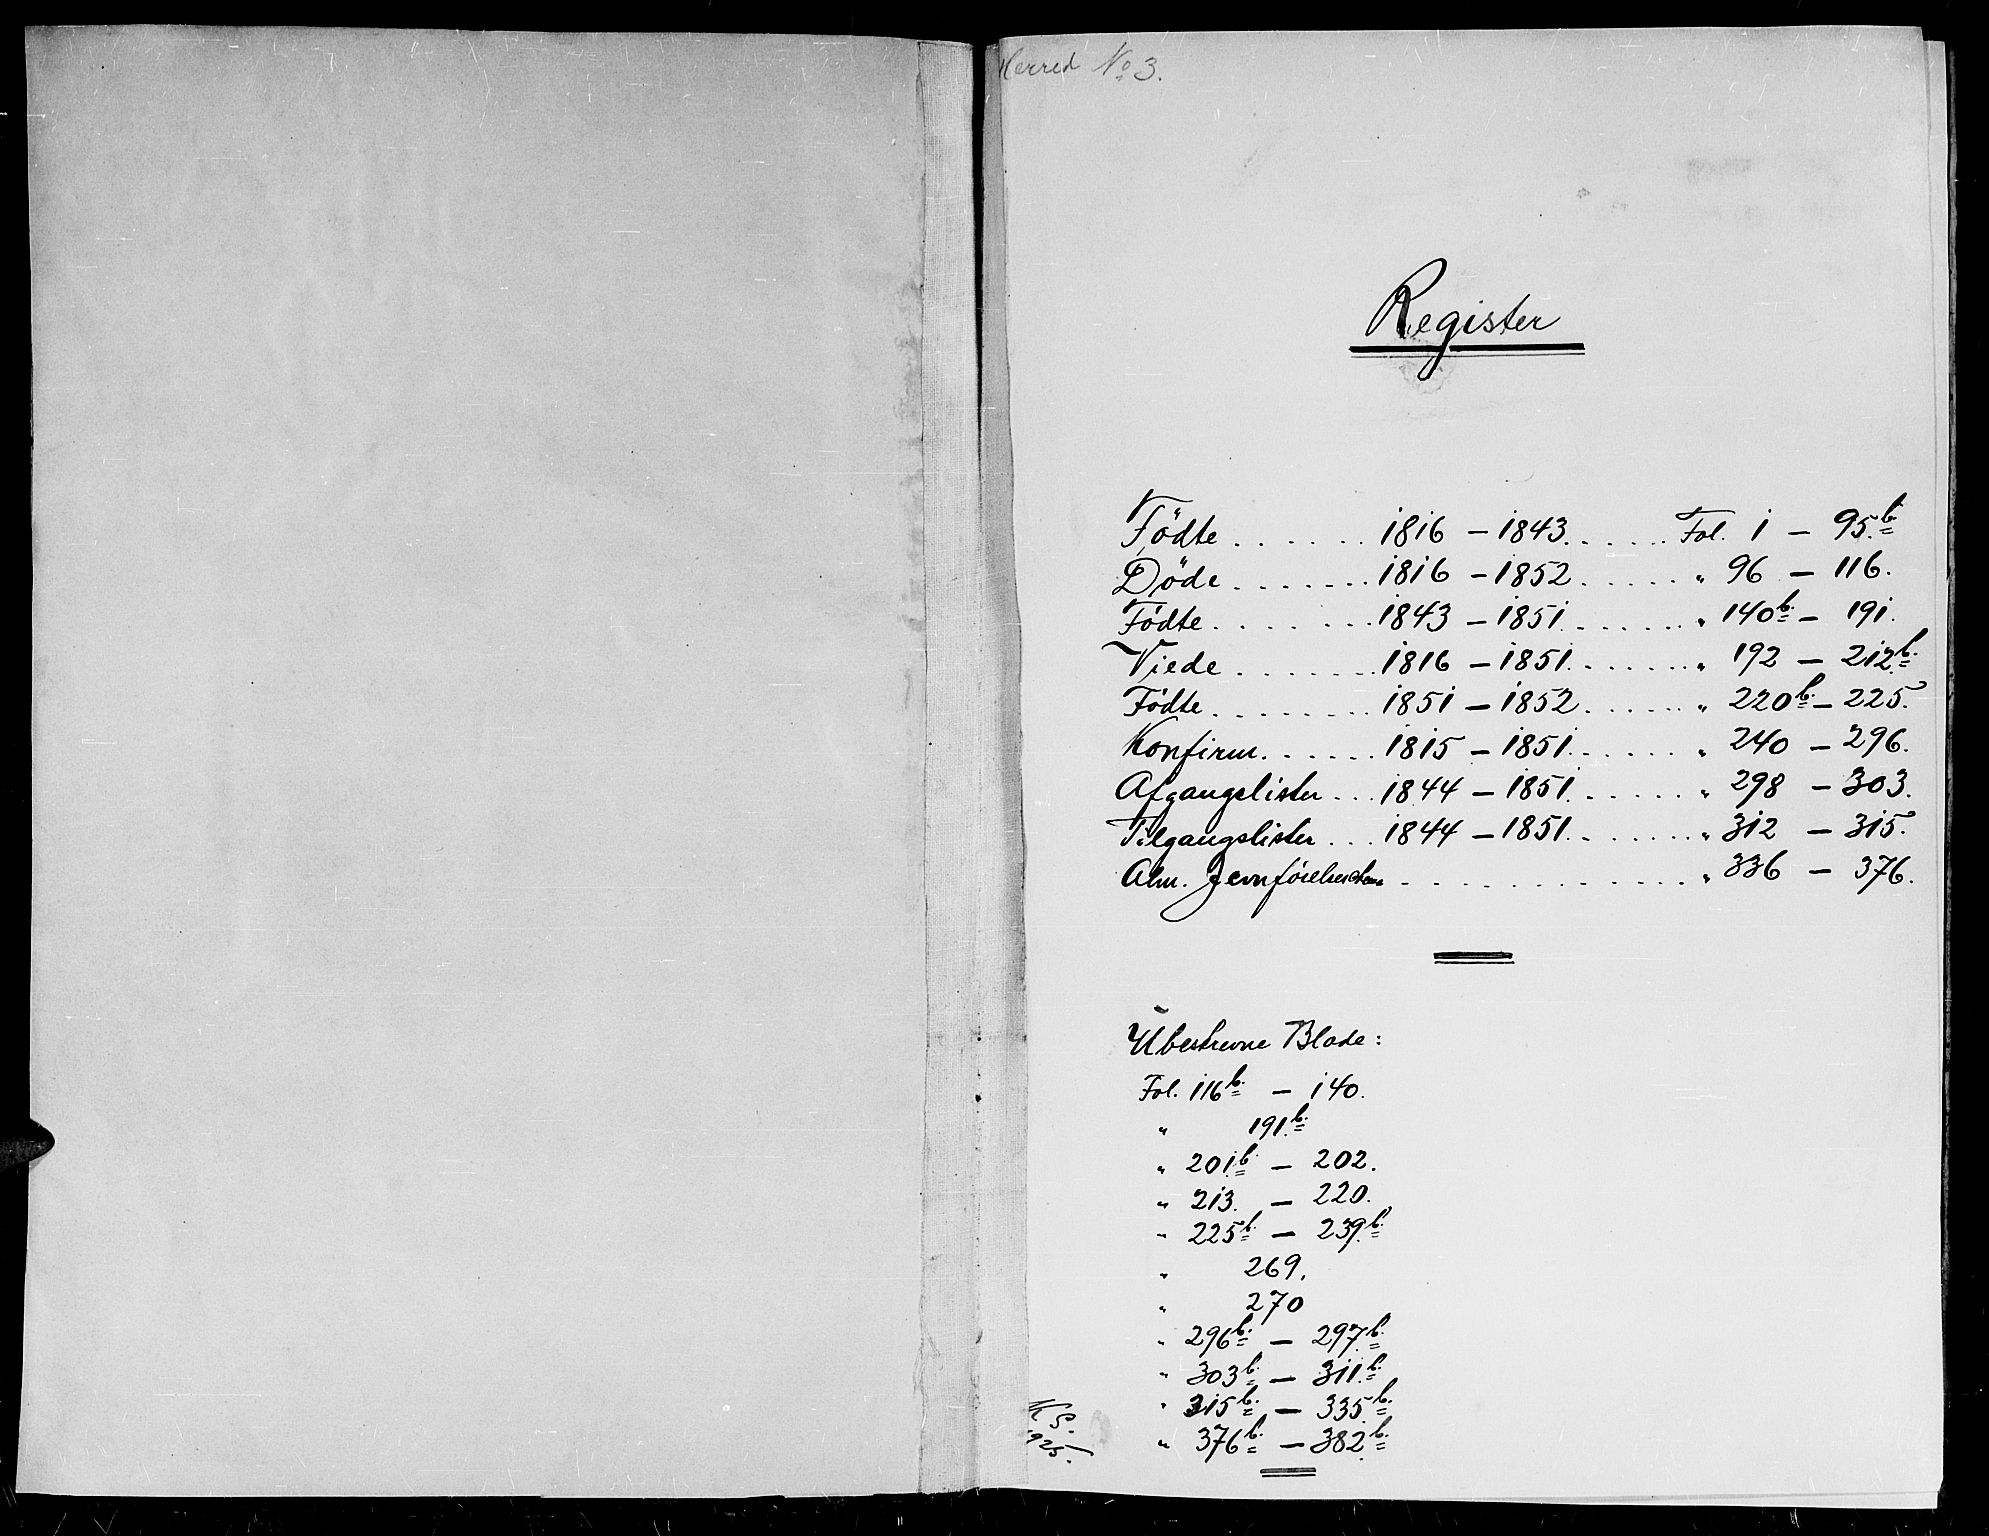 Herred No 3.
Register
Födte . . . . . . 1816 – 1843 . . . . . . Fol. 1 – 95 b.
Döde . . . . . . . 1816 – 1852 . . . . . . " 96 – 116.
Födte . . . . . . . 1843 – 1851 . . . . . . " 140 b. – 191.
Viede . . . . . . . 1816 – 1851 . . . . . . " 192 – 212 b.
Födte . . . . . . . 1851 – 1852 . . . . . . " 220 b. – 225.
Konfirm . . . . . . 1815 – 1851 . . . . . . " 240 – 296.
Afgangslister . . . 1844 – 1851 . . . . . . " 298 – 303.
Tilgangslister . . . 1844 – 1851 . . . . . . " 312 – 315.
Alm. . . . . . . . . . . . . . " 336 – 376.
Ubeskrevne Blade:
Fol. 116 b. – 140.
" 191 b.
" 201 b. – 202.
" 213. – 220.
" 225 b. – 239 b.
" 269.
" 270
" 296 b. – 297 b.
" 303 b. – 311 b.
" 315 b. – 335 b.
" 376 b. – 382 b.
K S.
1925.